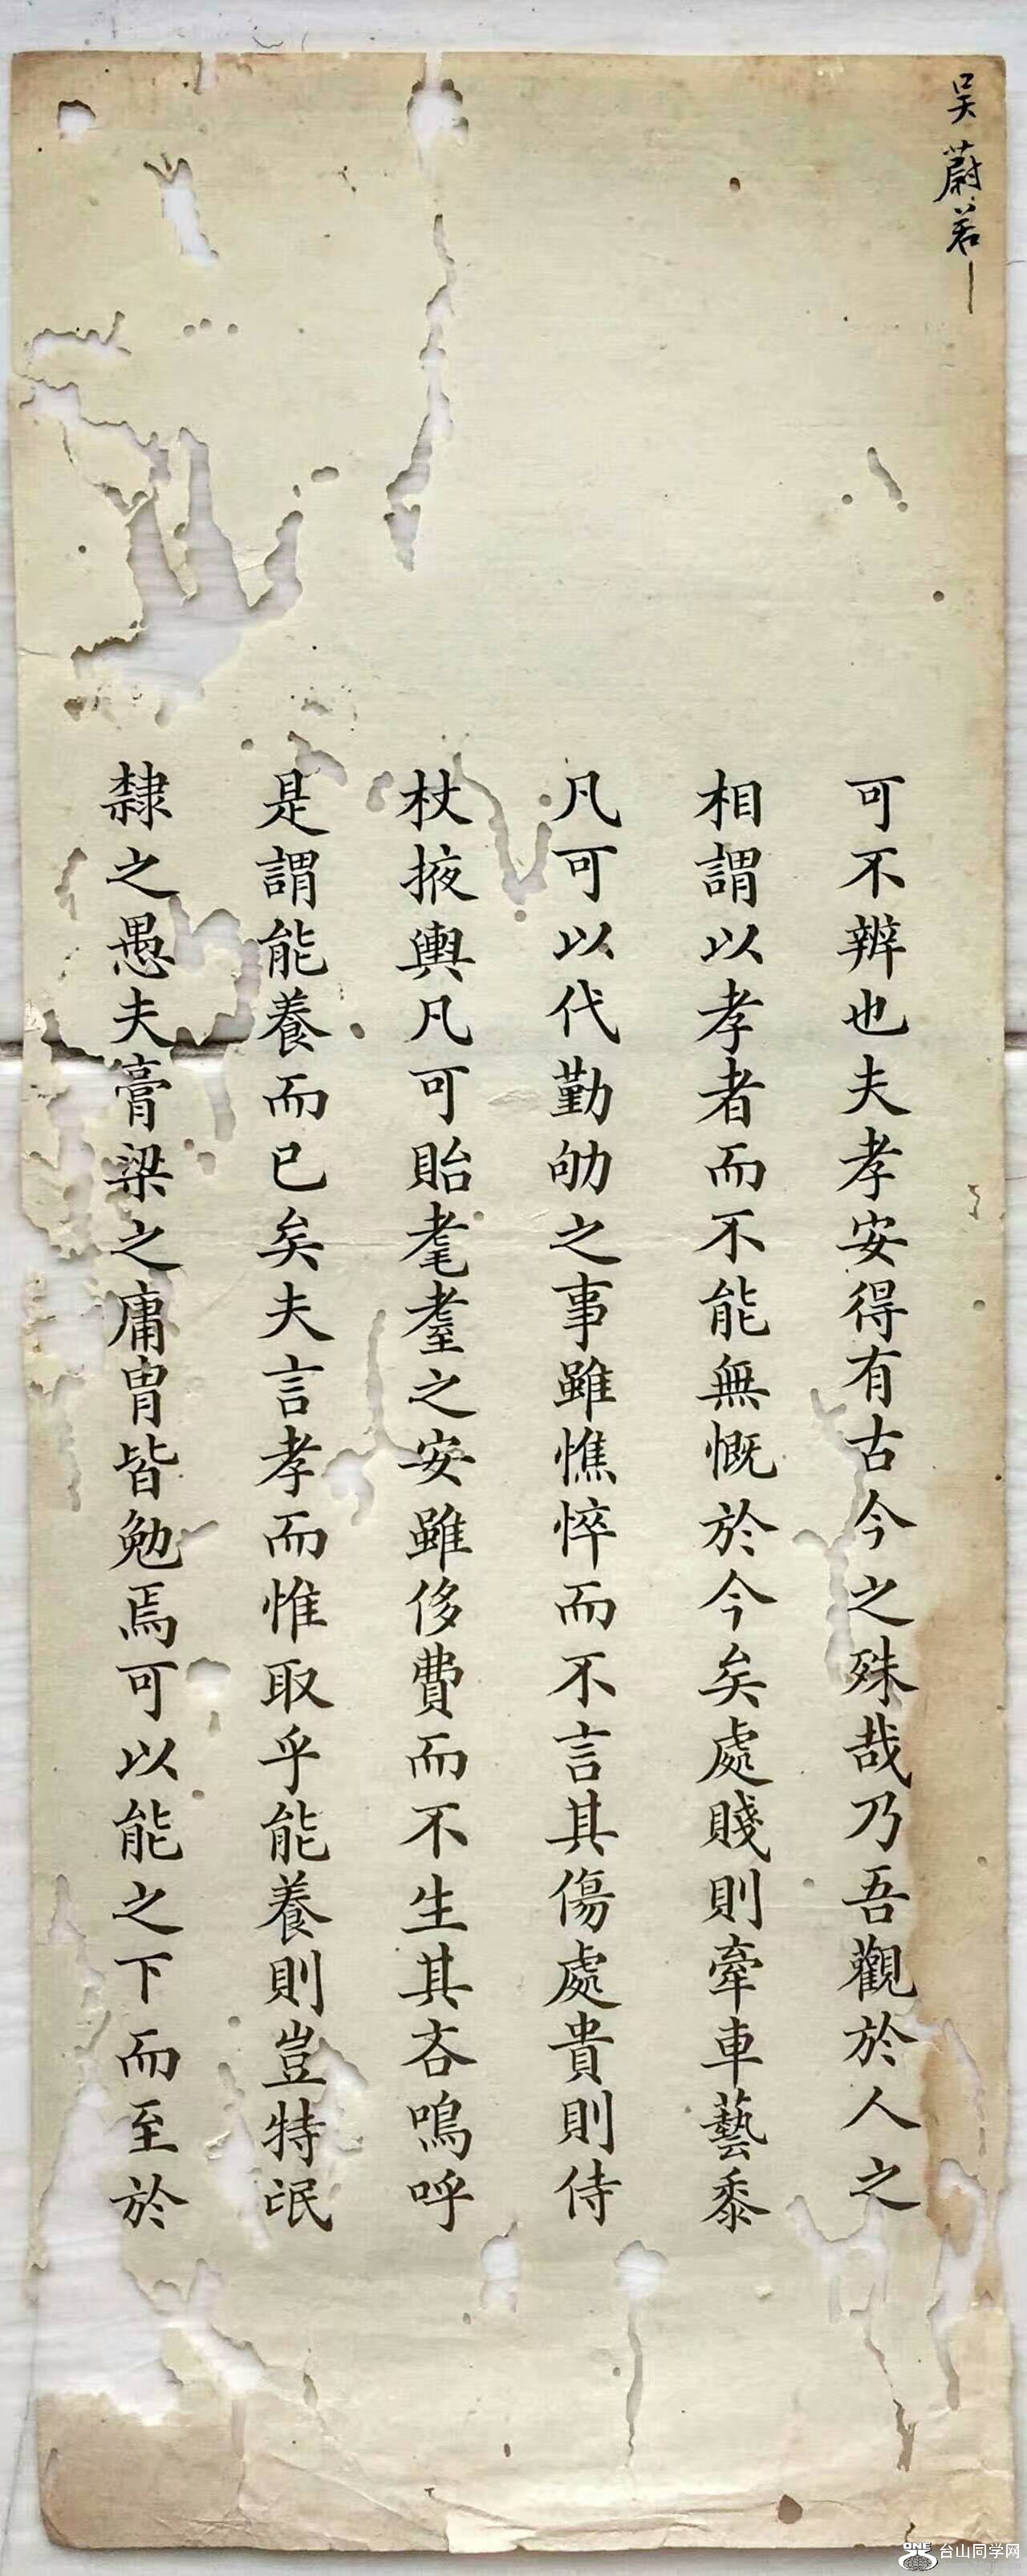 吴蔚若
可不辨也夫孝安得有古今之殊哉乃吾觀於人之
相謂以孝者而不能無慨於今矣處賤則牽車藝黍
凡可以代勤劬之事雖憔悴而不言其傷處貴則侍
杖掖輿凡可貽耄耋之安雖侈費而不生其吝嗚呼
是謂能養而已矣夫言孝而惟取乎能養則豈特氓
隸之愚夫膏粱之庸胄皆勉焉可以能之下而至於
ONE
台山同学网